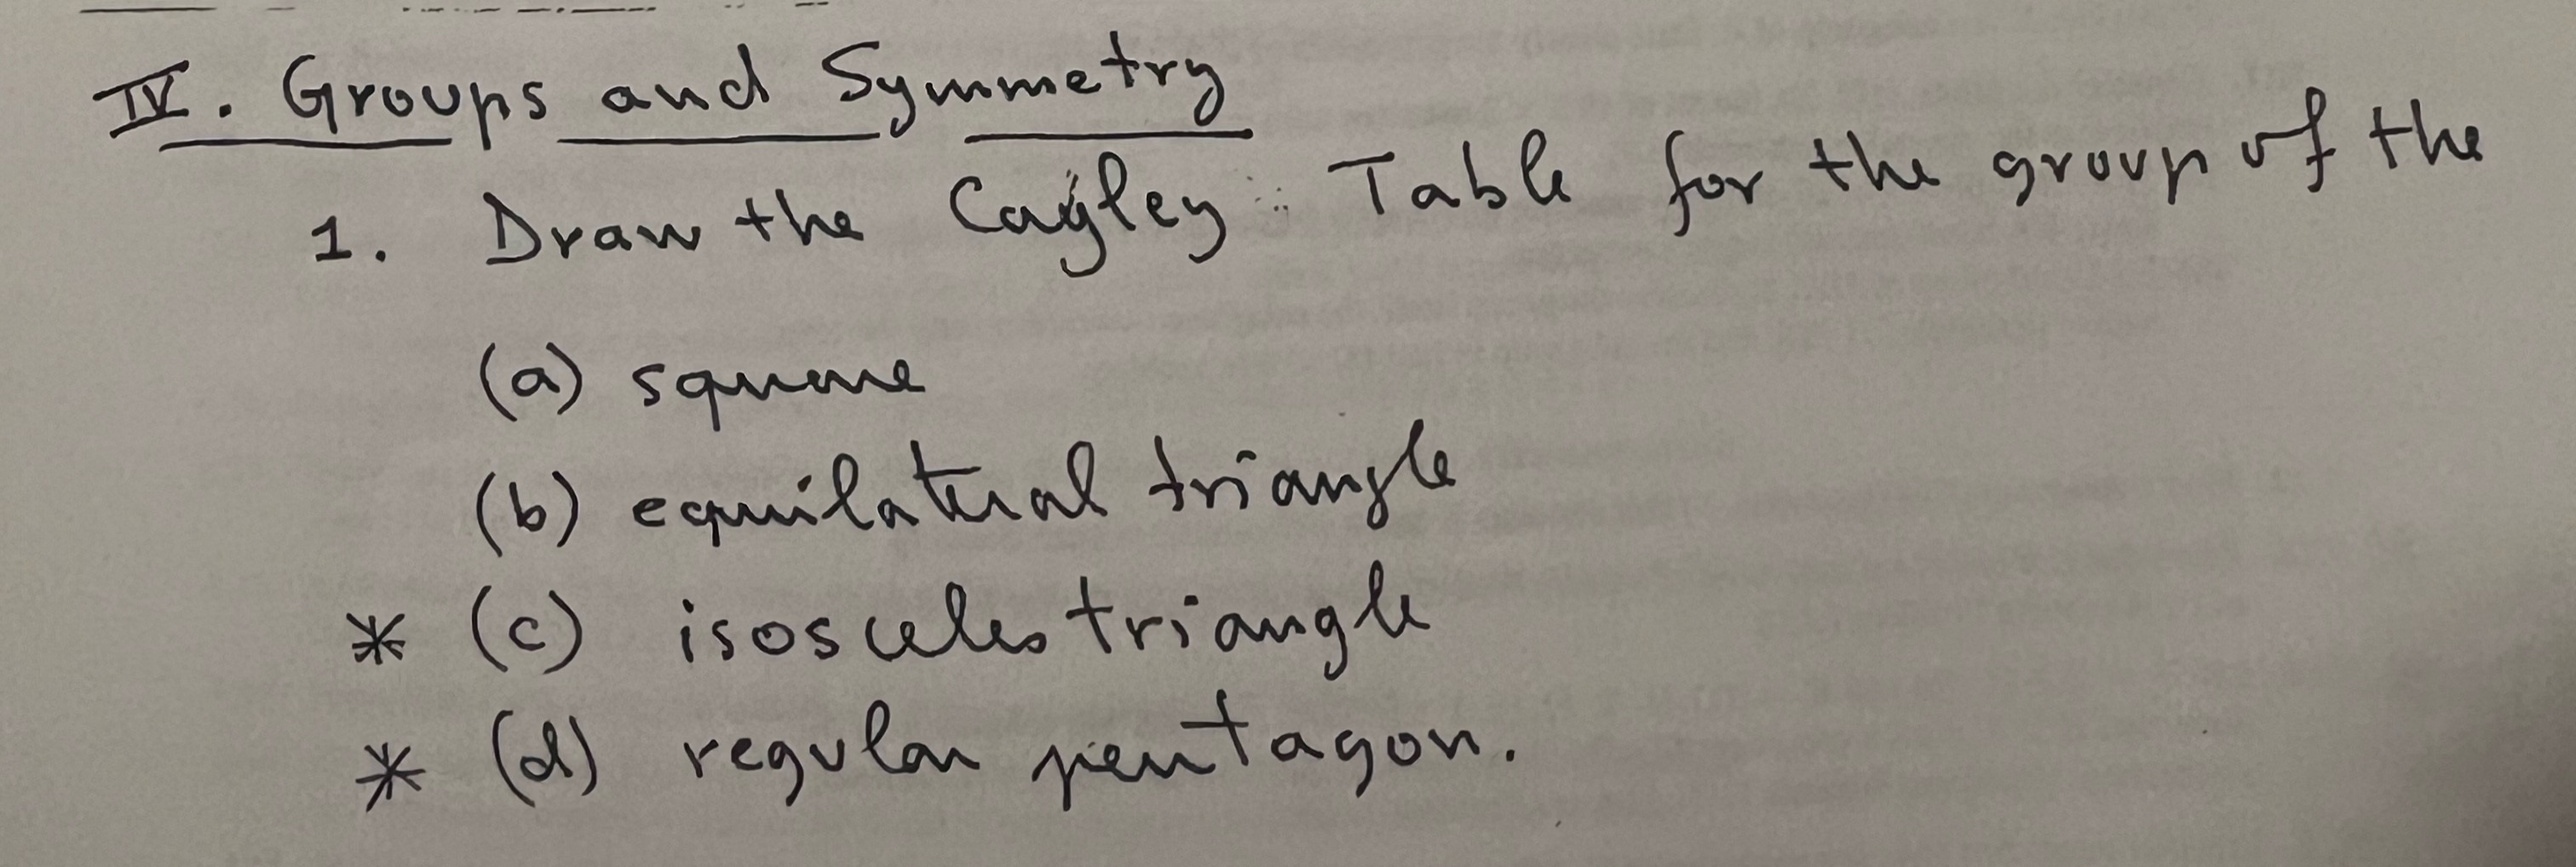 IV. Groups and Symmetry
1. Draw the Cayley Table for the group of the
(a) square
(b) equilateral triangle
* (c) isosceles triangle
* (d) regular pentagon.